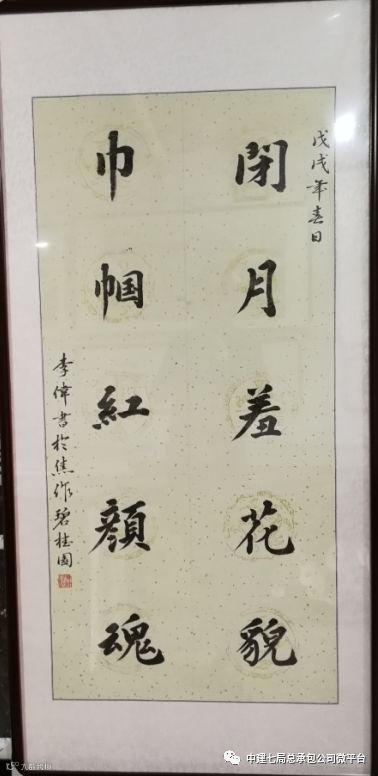 戊戌年春日
閉月羞花貌
巾帼紅顔魂
李偉書於焦作碧桂園
中建七局总承包公司微平台